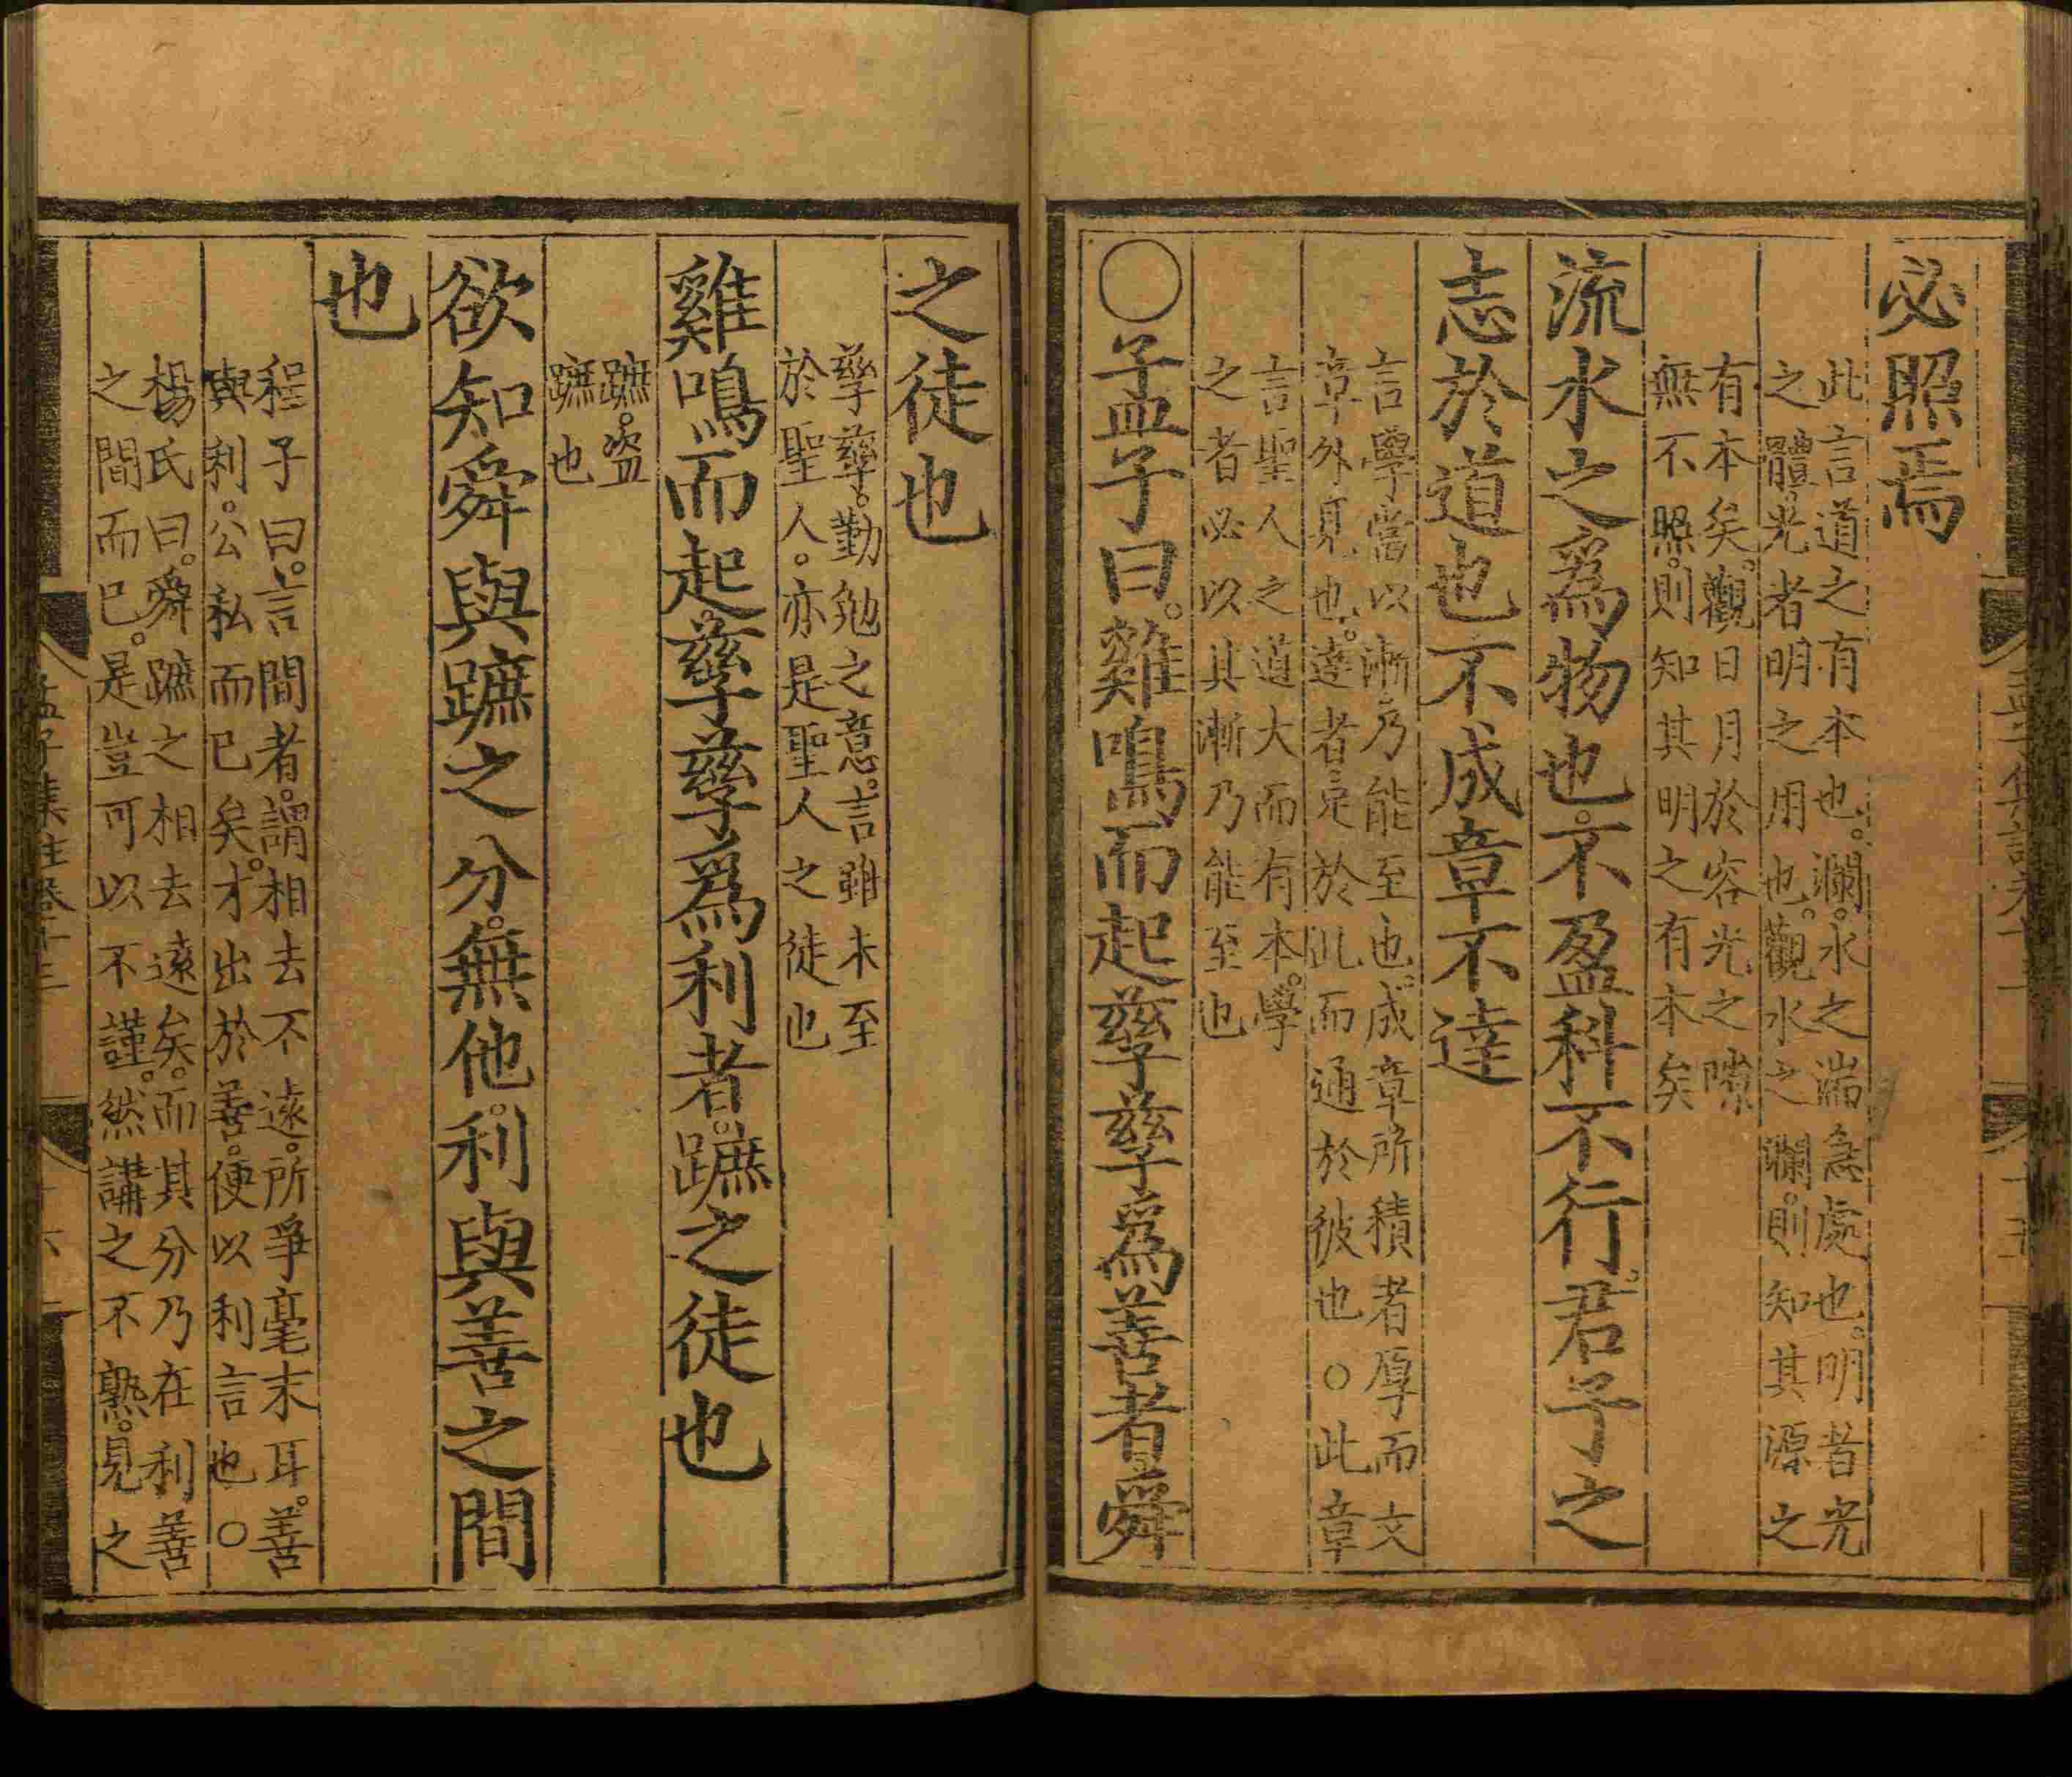 必照焉
此言道之有本也。瀾。水之湍急處也。明者光
之體。光者明之用也。觀水之瀾。則知其源之
有本矣。觀日月於容光之隙
無不照。則知其明之有本矣
流水之爲物也。不盈科不行。君子之
志於道也不成章不達
言學當以漸乃能至也。成章所積者厚而文
章外見也。達者足於此而通於彼也○此章
言聖人之道大而有本。學
之者必以其漸乃能至也
○孟子曰。雞鳴而起孳孳爲善者舜
之徒也
孳孳。勤勉之意。言雖未至
於聖人。亦是聖人之徒也
雞鳴而起。孳孳爲利者。蹠之徒也
蹠。盜
蹠也
欲知舜與蹠之分。無他。利與善之間
也
程子曰。言間者。謂相去不遠。所爭毫末耳。善
與利。公私而已矣。才出於善。便以利言也○
楊氏曰。舜蹠之相去遠矣。而其分乃在利善
之間而已。是豈可以不謹。然講之不熟。見之
孟子集註卷十三
十六